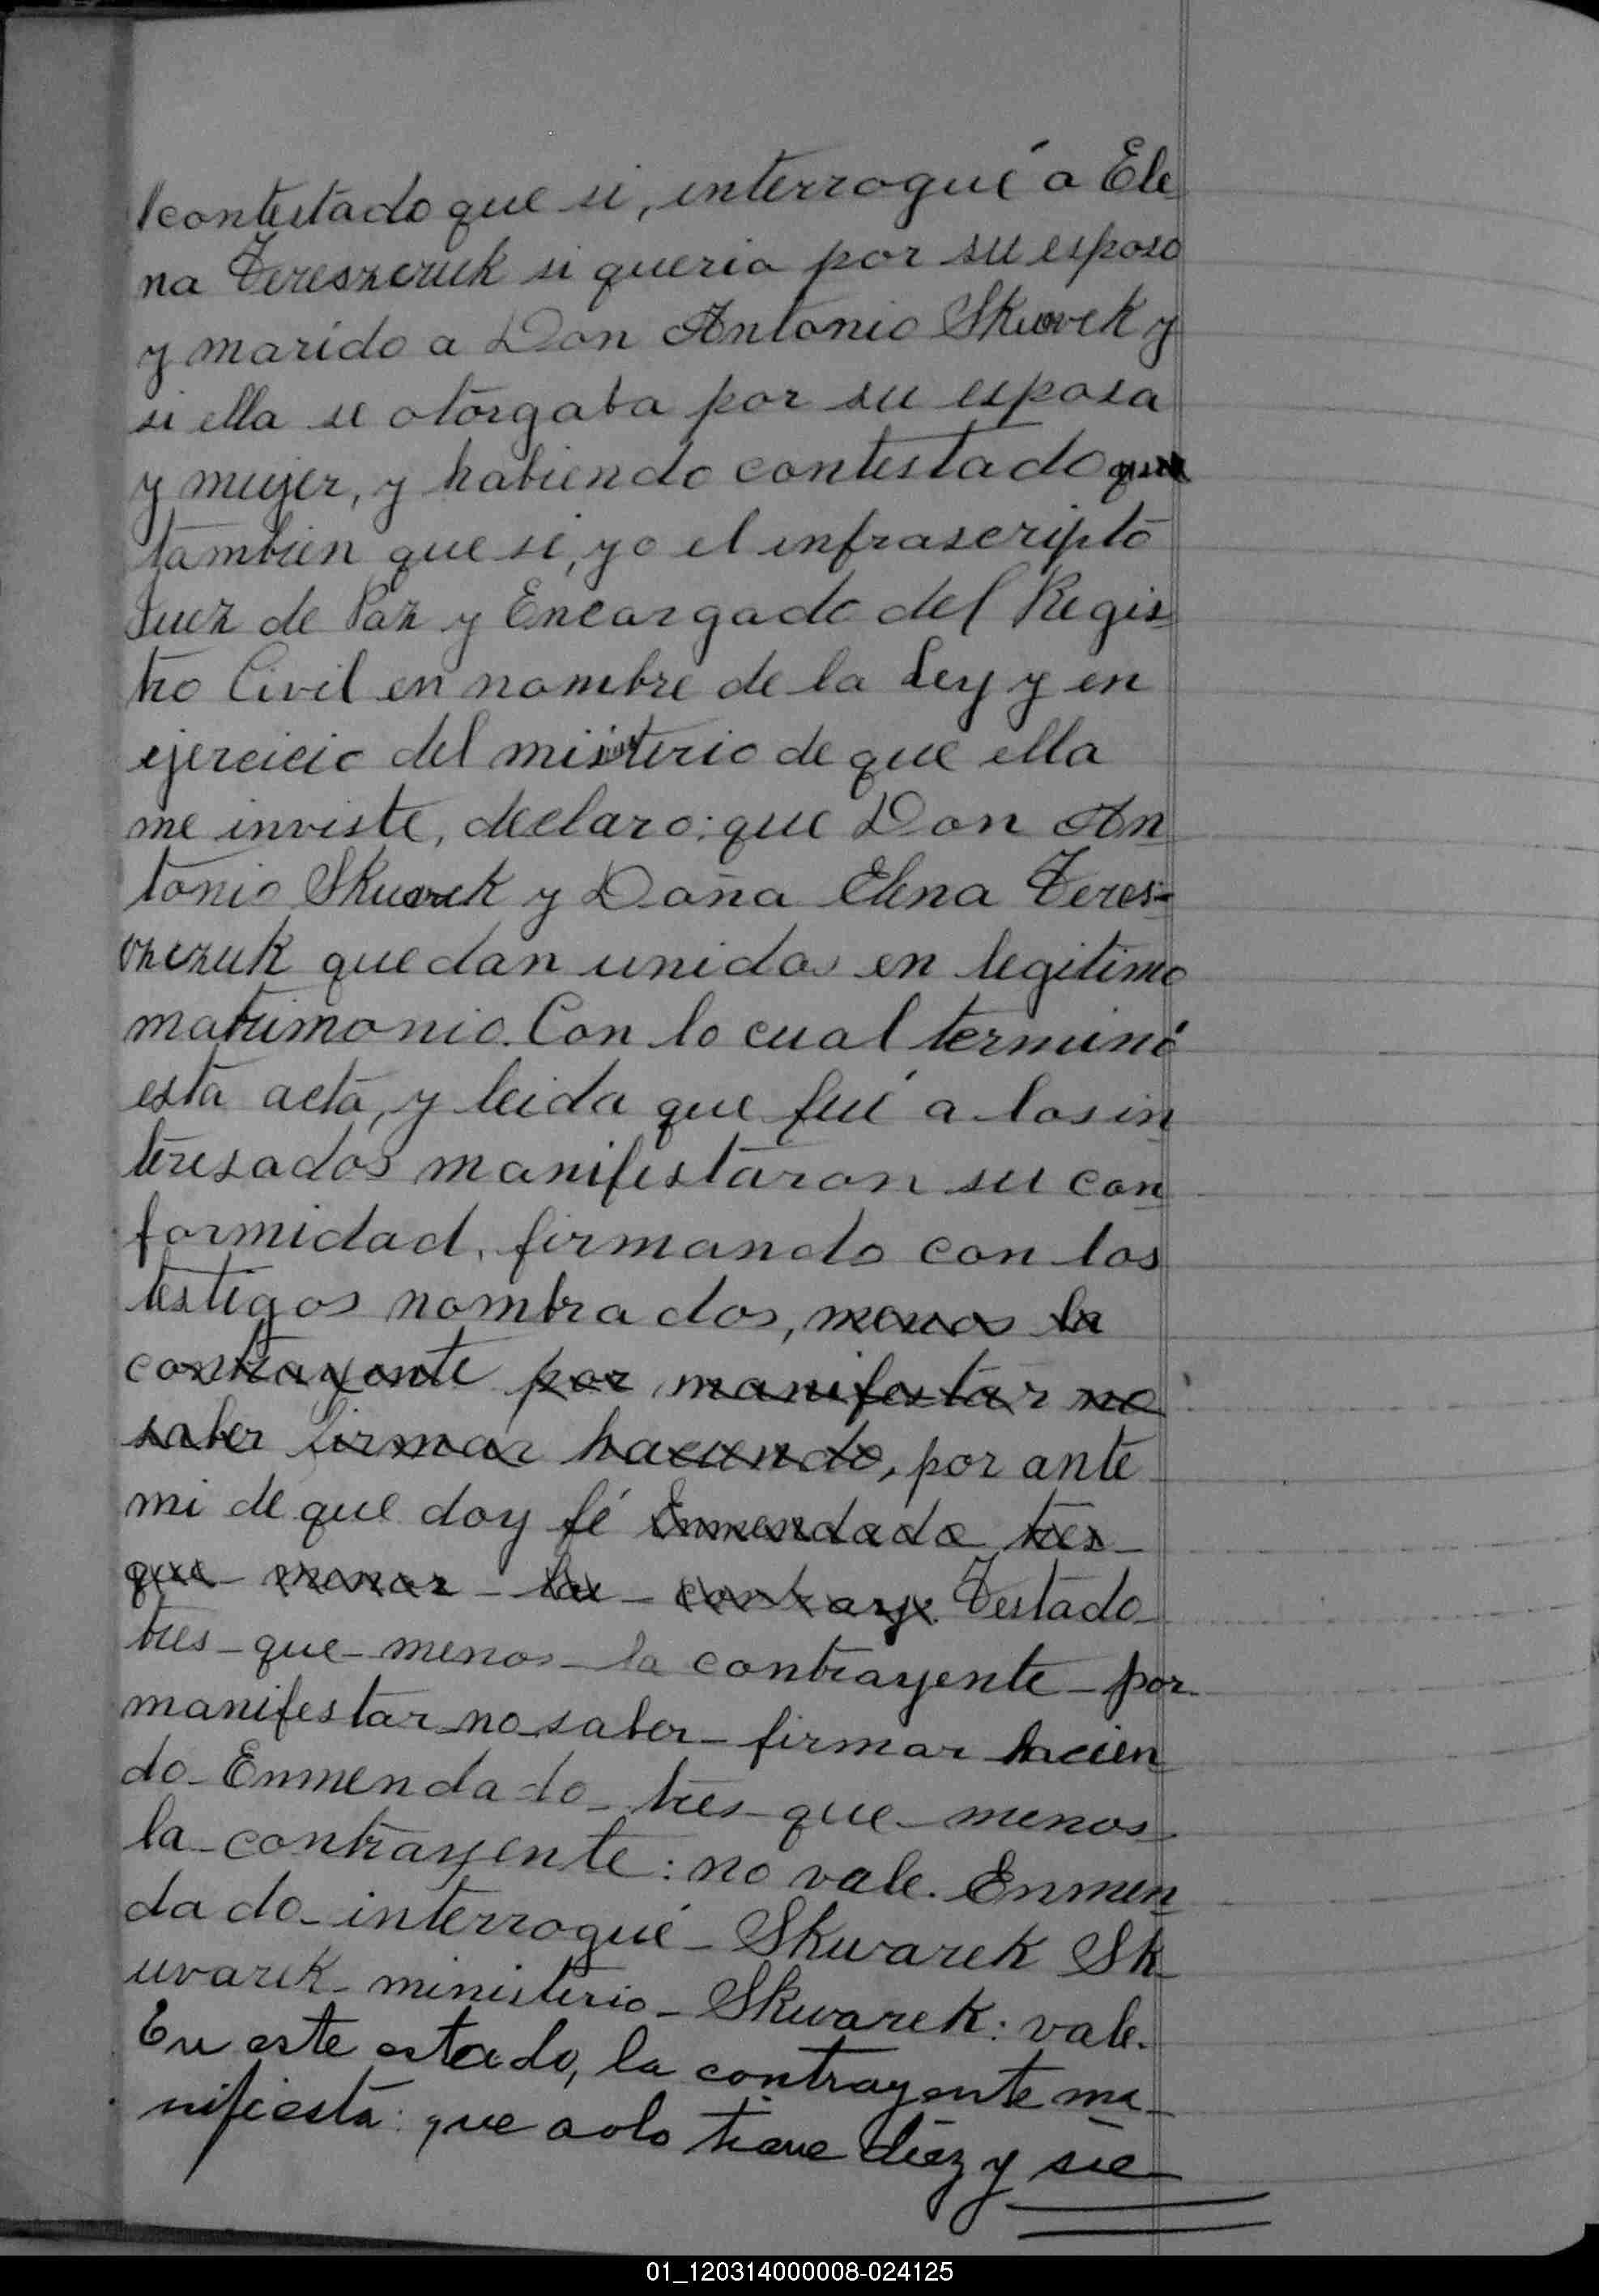 contestado que si, interrogué a Ele
na Tereszczuk si queria por su esposo
y marido a Don Antonio Skuvarek y
si ella se otorgaba por su esposa
y mujer, y habiendo contestado que
tambien que si, yo el infrascripto
Juez de Paz y Encargado del Regis
tro Civil en nombre de la Ley y en
ejercicio del ministerio de que ella
me inviste, declaro: que Don An
tonio Skuvarek y Doña Elena Teres-
zczuk quedan unidos en legitimo
matrimonio. Con lo cual terminé
esta acta, y leida que fué a los in
teresados manifestaron su con
formidad, firmando con los
testigos nombrados, menos la
contrayente por manifestar no
saber firmar haciendo, por ante
mi de que doy fé Enmendado tres-
que - menos - la - contraye. Testado-
tres - que - menos - la contrayente - por
manifestar no saber - firmar hacien
do - Enmendado - tres - que - menos
la - contrayente: no vale. Enmen
dado - interrogué - Skuvarek Sk
uvarek - ministerio - Skuvarek: vale.
En este estado, la contrayente ma-
nifiesta: que solo tiene diez y sie
01_120314000008-024125